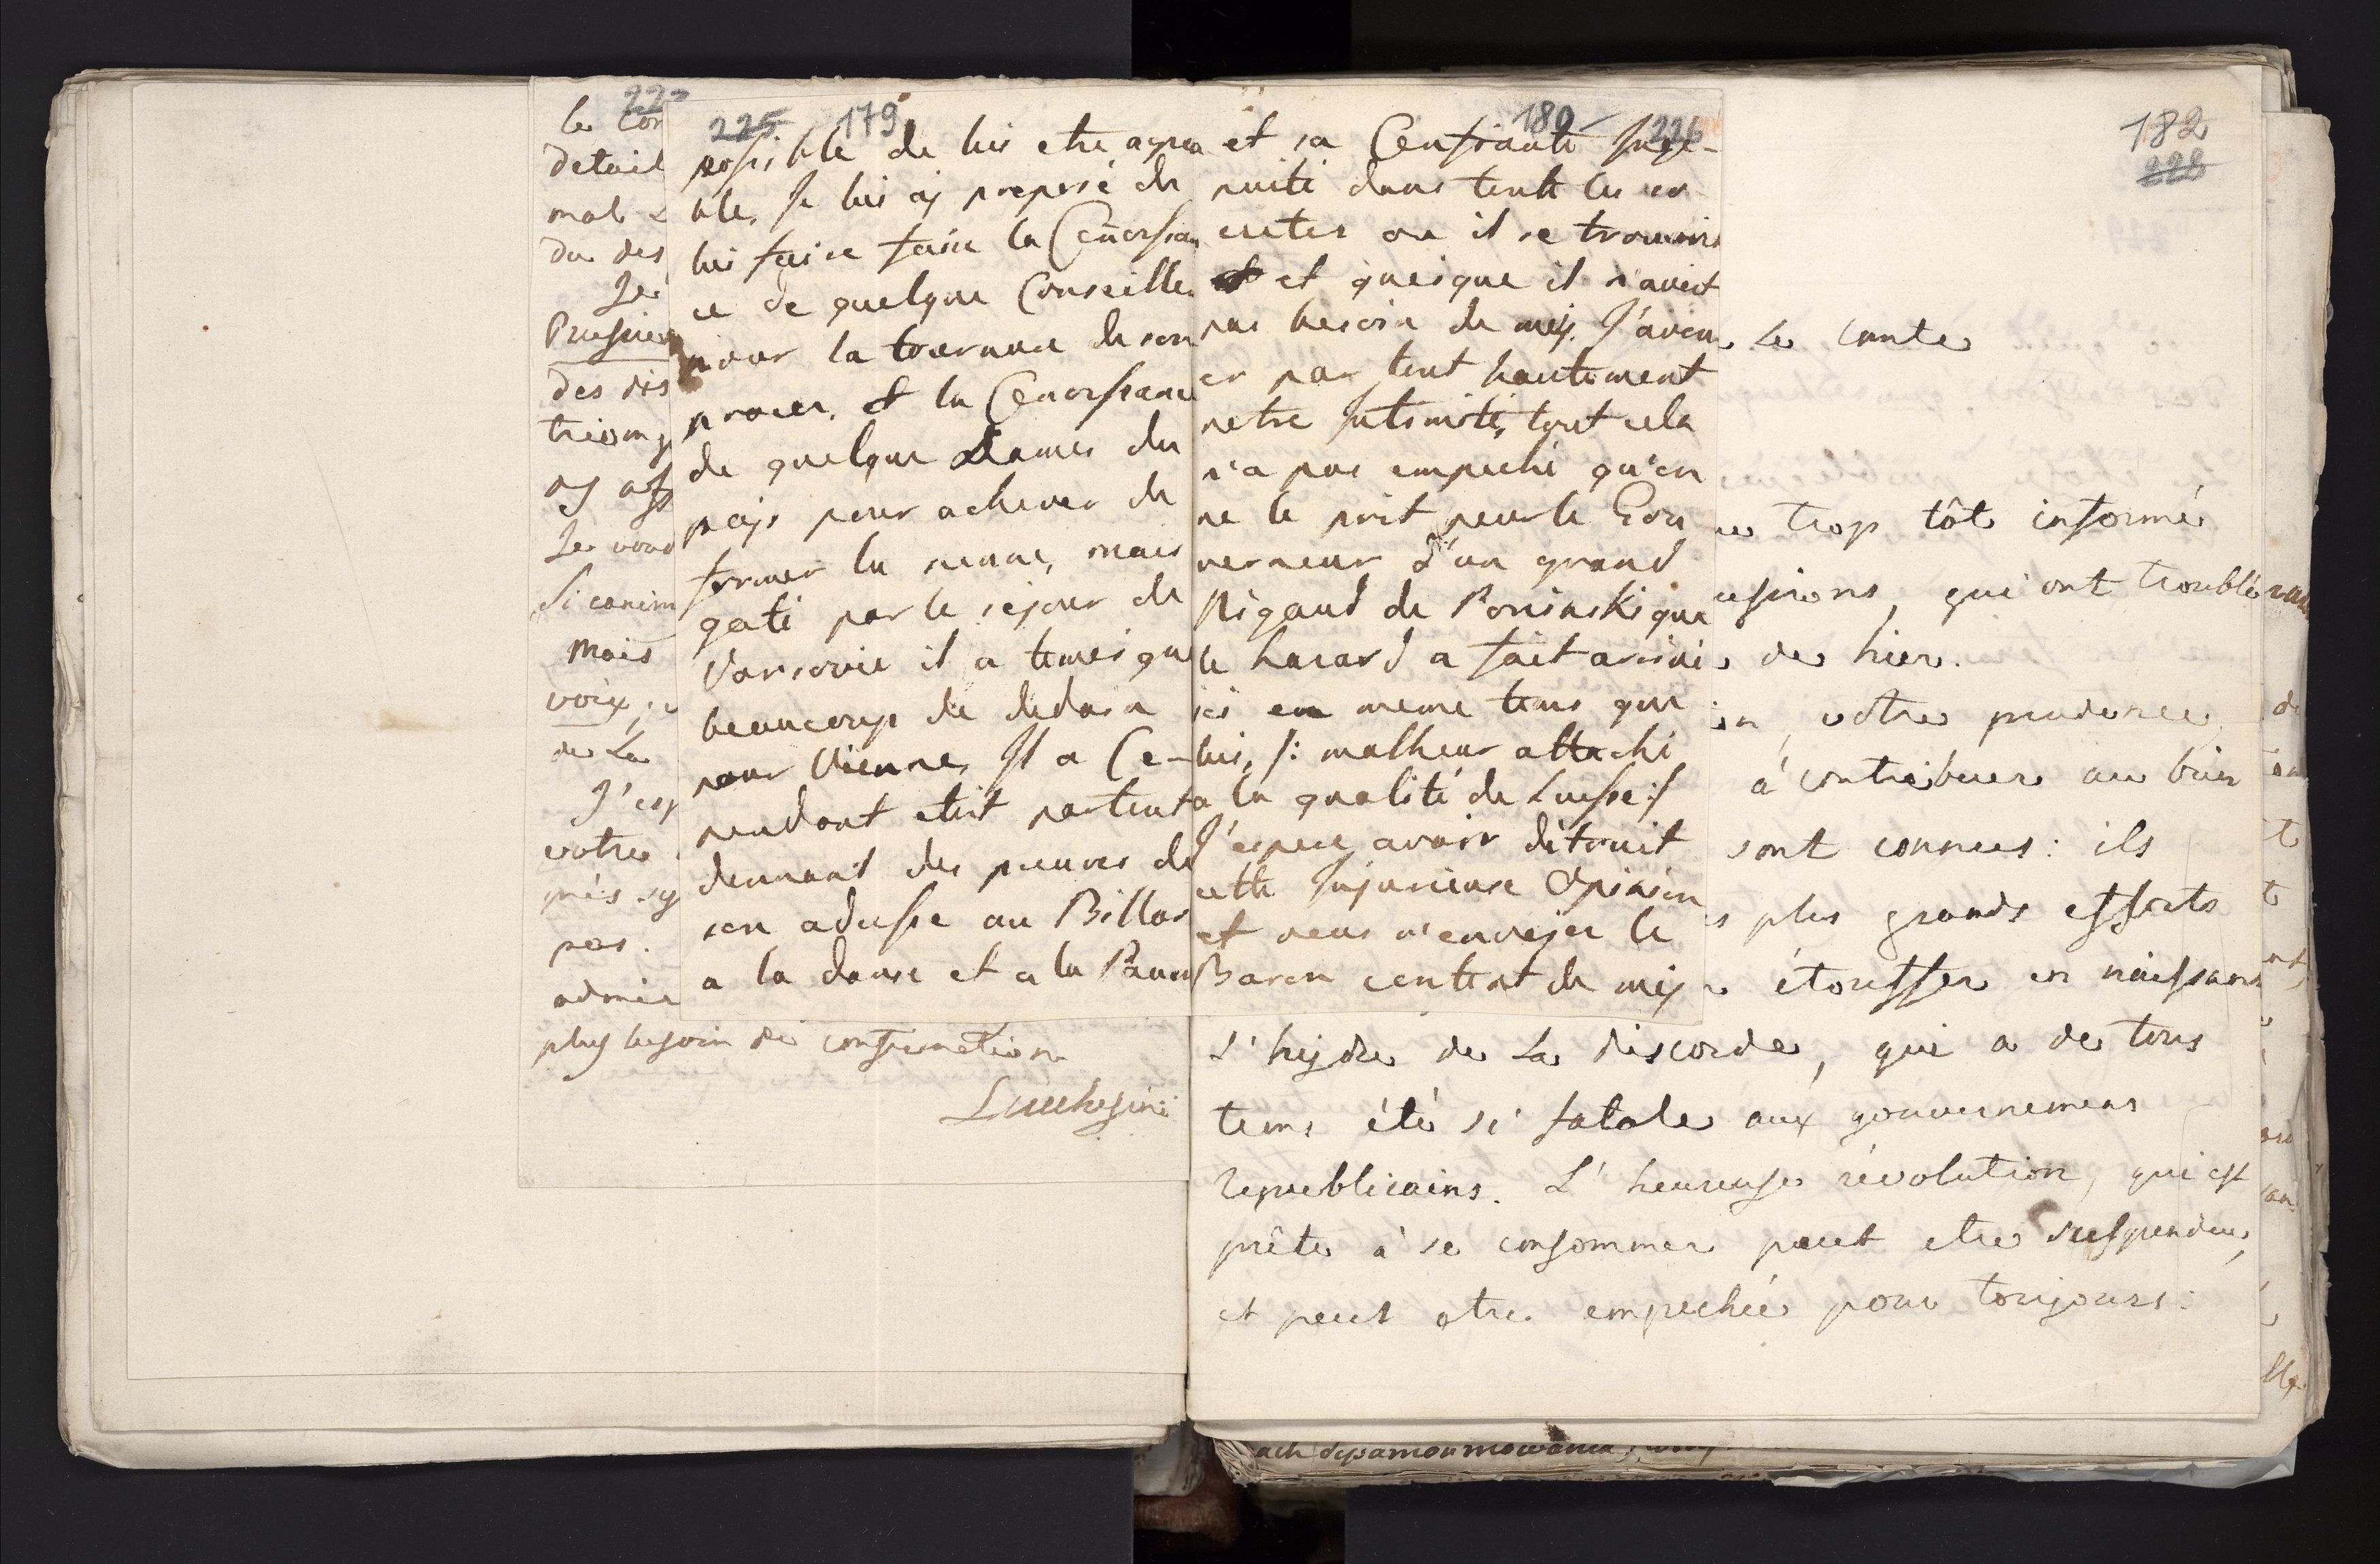 227
le Con
detail
mal
du des
Je
Prussien
des dis
triomp
Je voud
Si conim
mais
voix,
de La
J'esp
votre
près
pas.
admir
plus besoin de confirmation
Lucchesini
225 179
possible de lui etre agrea
ble, Je lui aÿ proposé de
lui faire faire la Connoissan
ce de quelque Conseiller
pour la tournure de son
proces, et la Connoissance
de quelque Dames du
païs pour achever de
former la sienne, mais
gaté par le sejour de
Varsovie il a temoigné
beaucoup de dedain
pour Vienne, Il a Ce-
pendant etoit partout
donnant des preuves de
son adresse au Billar
a la danse et a la Paum
180 226
et sa Confiante Inge-
nuité dans toute les so
cietes ou il se trouvoit
et quoique il n'avoit
pas besoin de moÿ. J'avou
er par tout hautement
notre Intimité, tout cela
n'a pas empeché qu'on
ne le prit pour le Gou
verneur d'un grand
Nigaud de Poninski que
le hazard a fait arriver
ici en meme tems que
lui, /: malheur attaché
a la qualité de Suisse :/
J'espere avoir détruit
cette Injurieuse Opinion
et vous r'envoyer le
Baron content de moÿ
182
228
Le Comte
trop tôt informé
qui ont troublé
de hier.
votre prudence
à contribuer au bien
sont connues : ils
plus grands efforts
étouffer en naissant
L'hydre de La discorde, qui a de tous
tems été si fatale aux gouvernemens
republicains. L'heureuse révolution, qui est
prête à se consommer peut etre suspendue,
et peut etre empechée pour toujours.